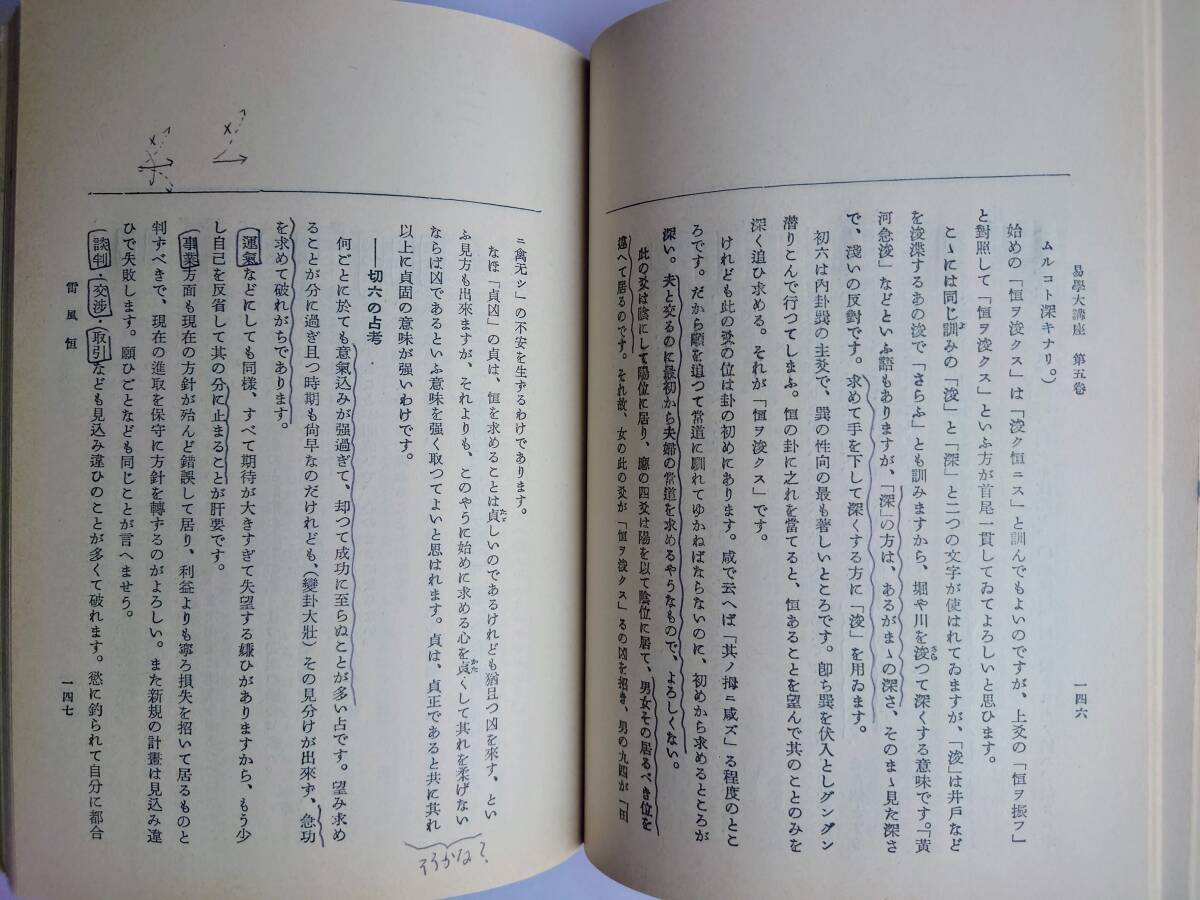 易學大講座 第五巻
一四六
ムルコト深キナリ。)
始めの「恒ヲ浚クス」は「浚ク恒ニス」と訓んでもよいのですが、上爻の「恒ヲ振フ」
と對照して「恒ヲ浚クス」といふ方が首尾一貫してゐてよろしいと思ひます。
こゝには同じ訓みの「浚」と「深」と二つの文字が使はれてゐますが、「浚」は井戸など
を浚渫するあの浚で「さらふ」とも訓みますから、堀や川を浚つて深くする意味です。「黄
河急浚」などといふ語もありますが、「深」の方は、あるがまゝの深さ、そのまゝ見た深さ
で、淺いの反對です。求めて手を下して深くする方に「浚」を用ゐます。
初六は内卦巽の主爻で、巽の性向の最も著しいところです。卽ち巽を伏入としグングン
潜りこんで行つてしまふ。恒の卦に之れを當てると、恒あることを望んで其のことのみを
深く追ひ求める。それが「恒ヲ浚クス」です。
けれども此の爻の位は卦の初めにあります。咸で云へば「其ノ拇ニ咸ズ」る程度のとこ
ろです。だから順を追つて常道に馴れてゆかねばならないのに、初めから求めるところが
深い。夫と交るのに最初から夫婦の常道を求めるやうなもので、よろしくない。
此の爻は陰にして陽位に居り、應の四爻は陽を以て陰位に居て、男女その居るべき位を
違へて居るのです。それ故、女の此の爻が「恒ヲ浚クス」るの凶を招き、男の九四が「田
ニ禽无シ」の不安を生ずるわけであります。
なほ「貞凶」の貞は、恒を求めることは貞しいのであるけれども猶且つ凶を來す、とい
ふ見方も出來ますが、それよりも、このやうに始めに求める心を貞くして其れを柔げない
ならば凶であるといふ意味を強く取つてよいと思はれます。貞は、貞正であると共に其れ
以上に貞固の意味が強いわけです。
そうかな?
——初六の占考
何ごとに於ても意氣込みが強過ぎて、却つて成功に至らぬことが多い占です。望み求め
ることが分に過ぎ且つ時期も尙早なのだけれども、(變卦大壯)その見分けが出來ず、急功
を求めて破れがちであります。
運氣などにしても同樣、すべて期待が大きすぎて失望する嫌ひがありますから、もう少
し自己を反省して其の分に止まることが肝要です。
事業方面も現在の方針が殆んど錯誤して居り、利益よりも寧ろ損失を招いて居るものと
判すべきで、現在の進取を保守に方針を轉ずるのがよろしい。また新規の計畫は見込み違
ひで失敗します。願ひごとなども同じことが言へませう。
談判・交渉・取引なども見込み違ひのことが多くて破れます。慾に釣られて自分に都合
雷風恒
一四七